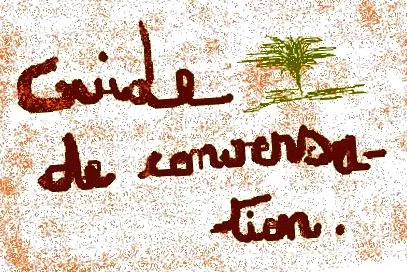 Guide
de conversa-
tion.